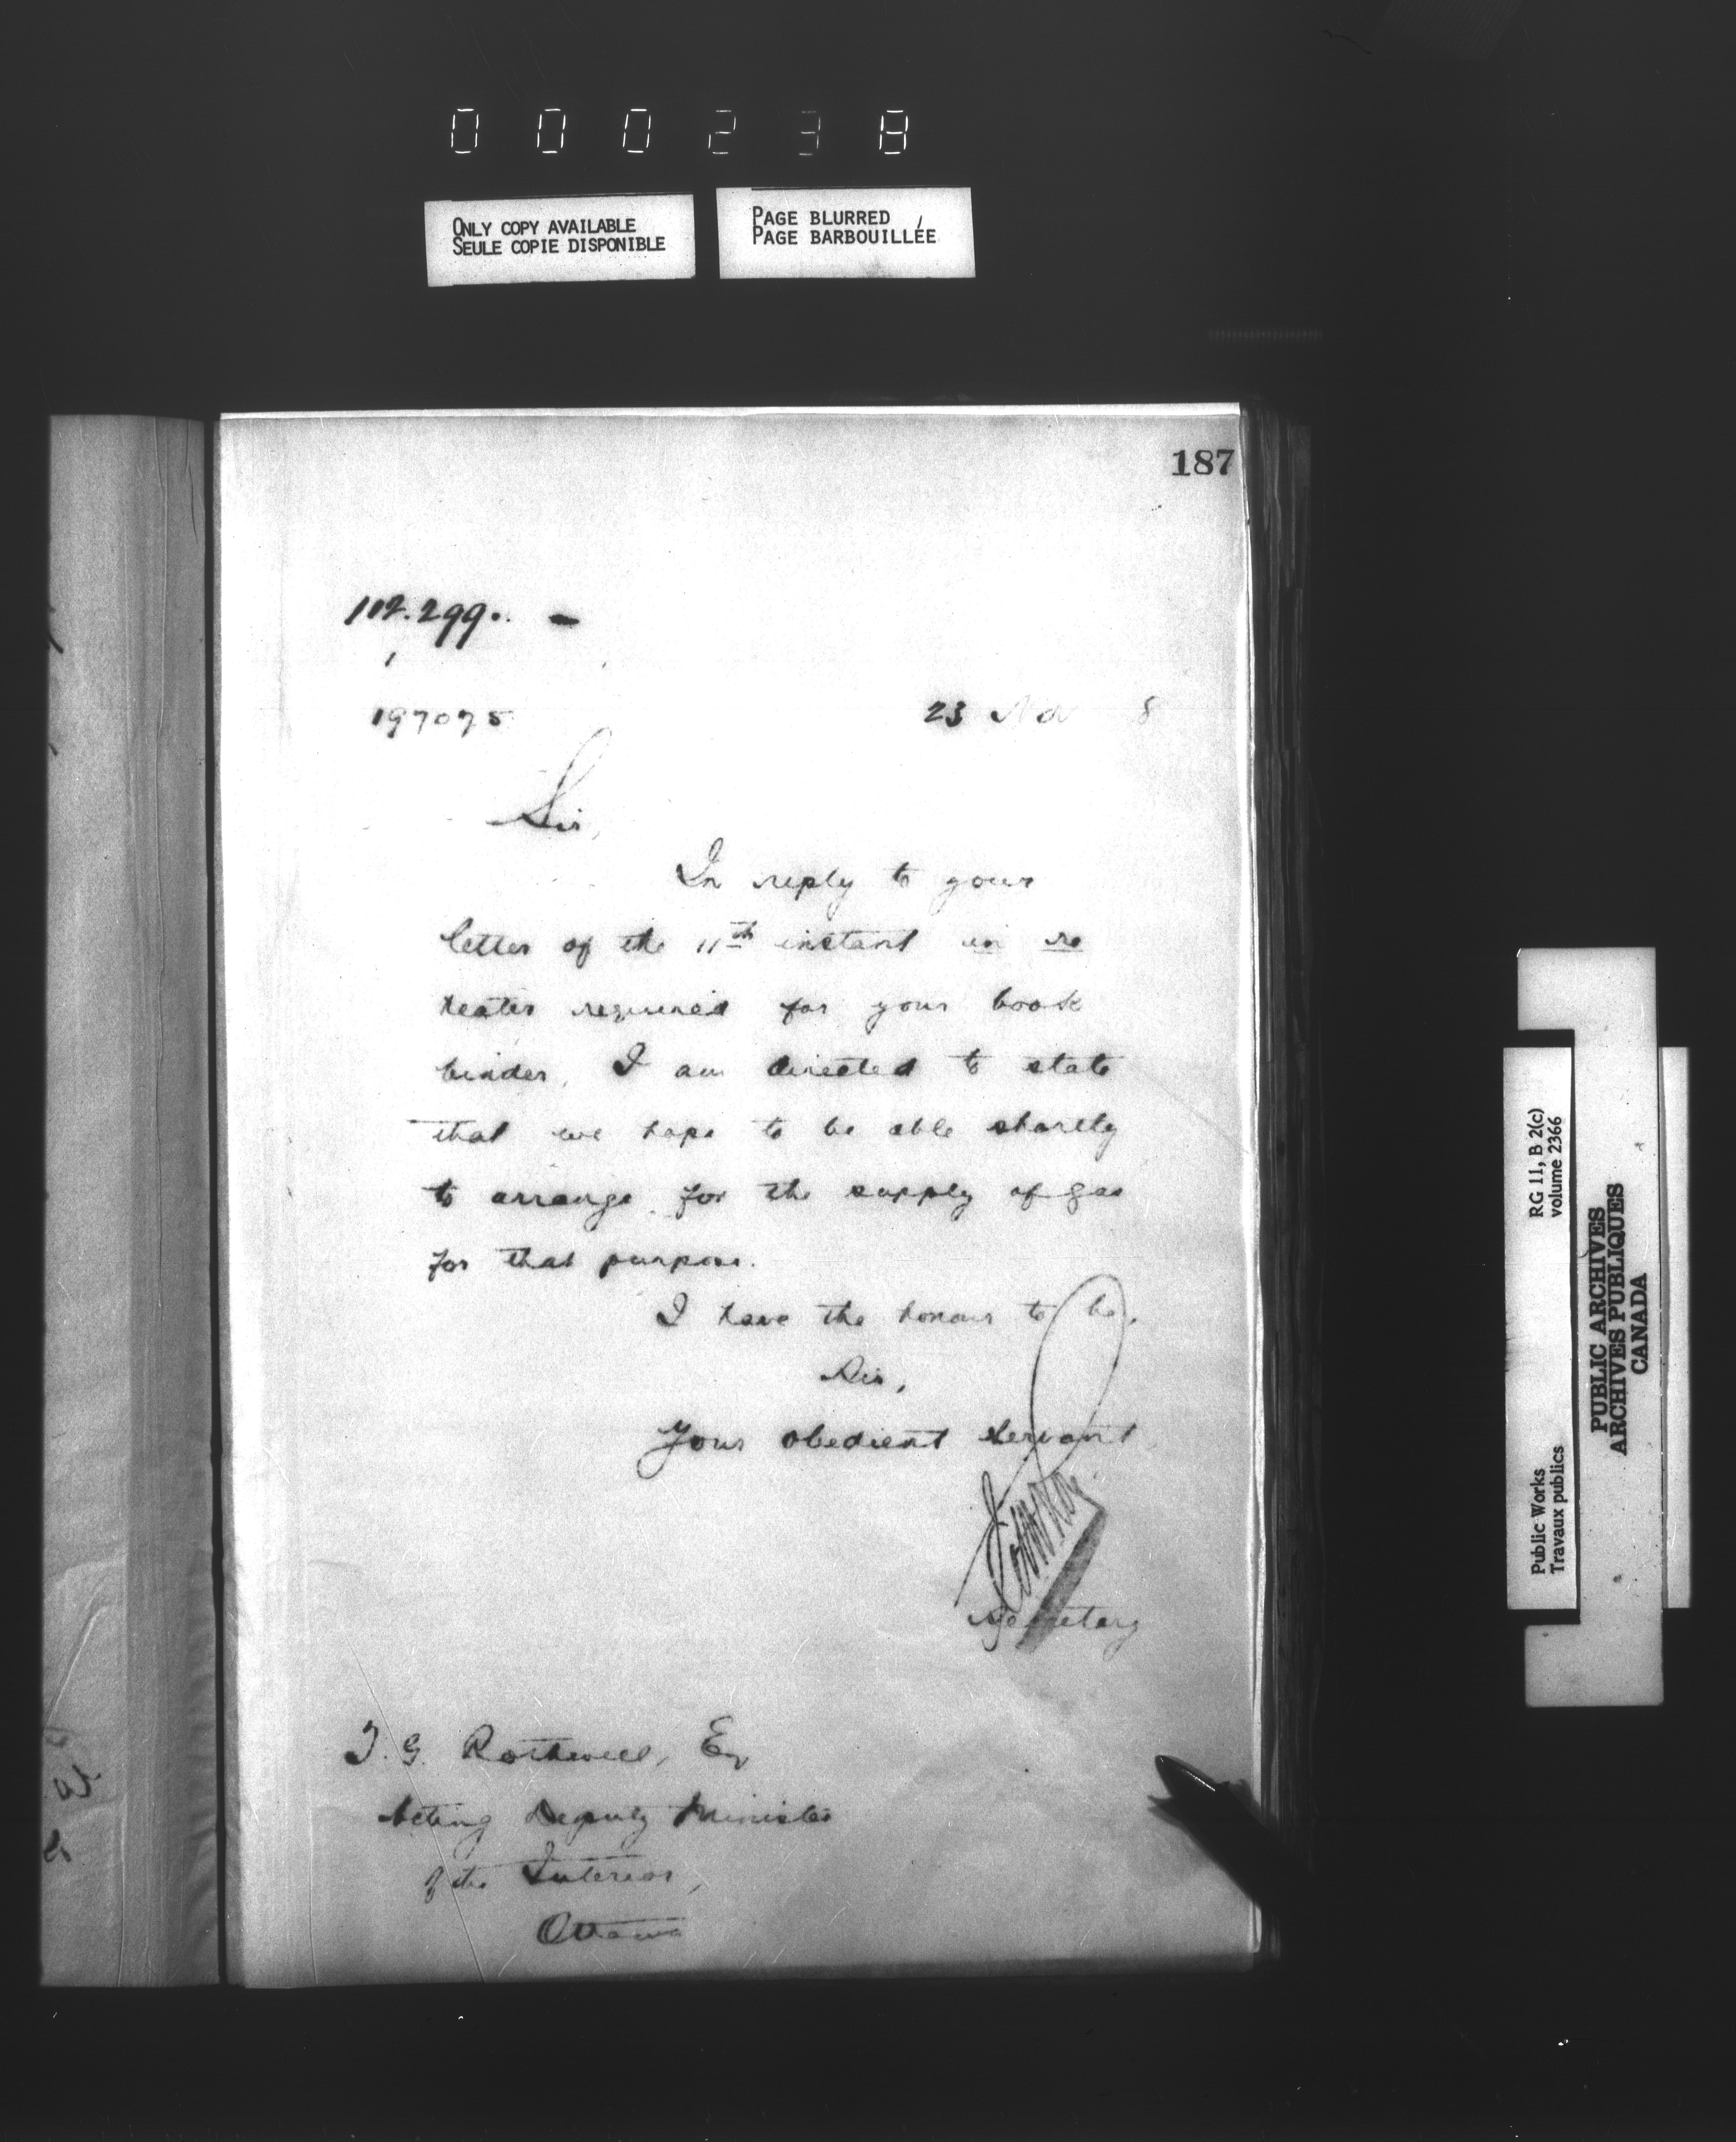 000238
ONLY COPY AVAILABLE
SEULE COPIE DISPONIBLE
PAGE BLURRED
PAGE BARBOUILLÉE
187
112.299.
197075
23 Nov 8
Sir,
In reply to your
letter of the 11th instant in re
heater required for your book
binder, I am directed to state
that we hope to be able shortly
to arrange for the supply of gas
for that purpose.
I have the honour to be,
Sir,
Your obedient servant
Secretary
T. G. Rothwell, Esq
Acting Deputy Minister
of the Interior,
Ottawa
RG 11, B 2(c)
volume 2366
Public Works
Travaux publics
PUBLIC ARCHIVES
ARCHIVES PUBLIQUES
CANADA